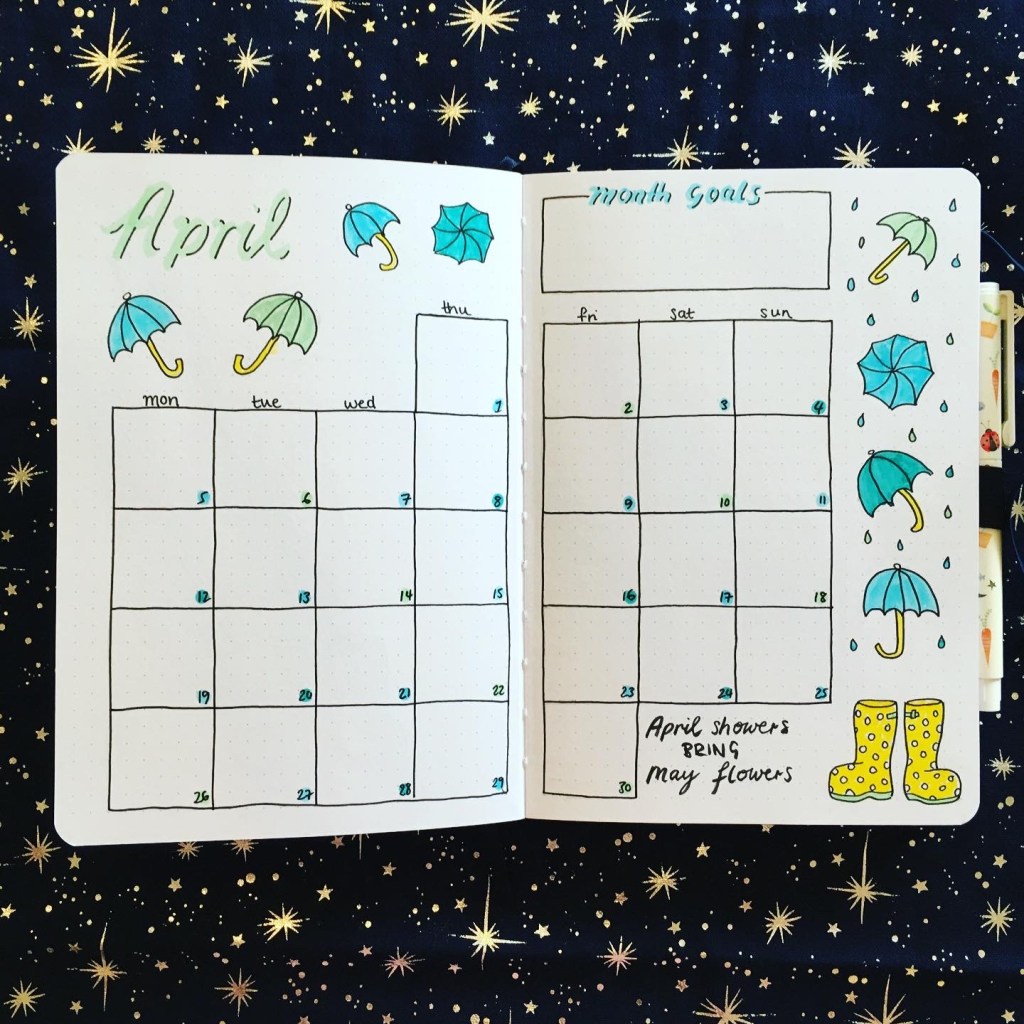 April
month Goals
thu
fri sat sun
1
2 3 4
mon tue wed
5 6 7 8
9 10 11
12 13 14 15
16 17 18
19 20 21 22
23 24 25
26 27 28 29
30
April showers
BRING
May flowers